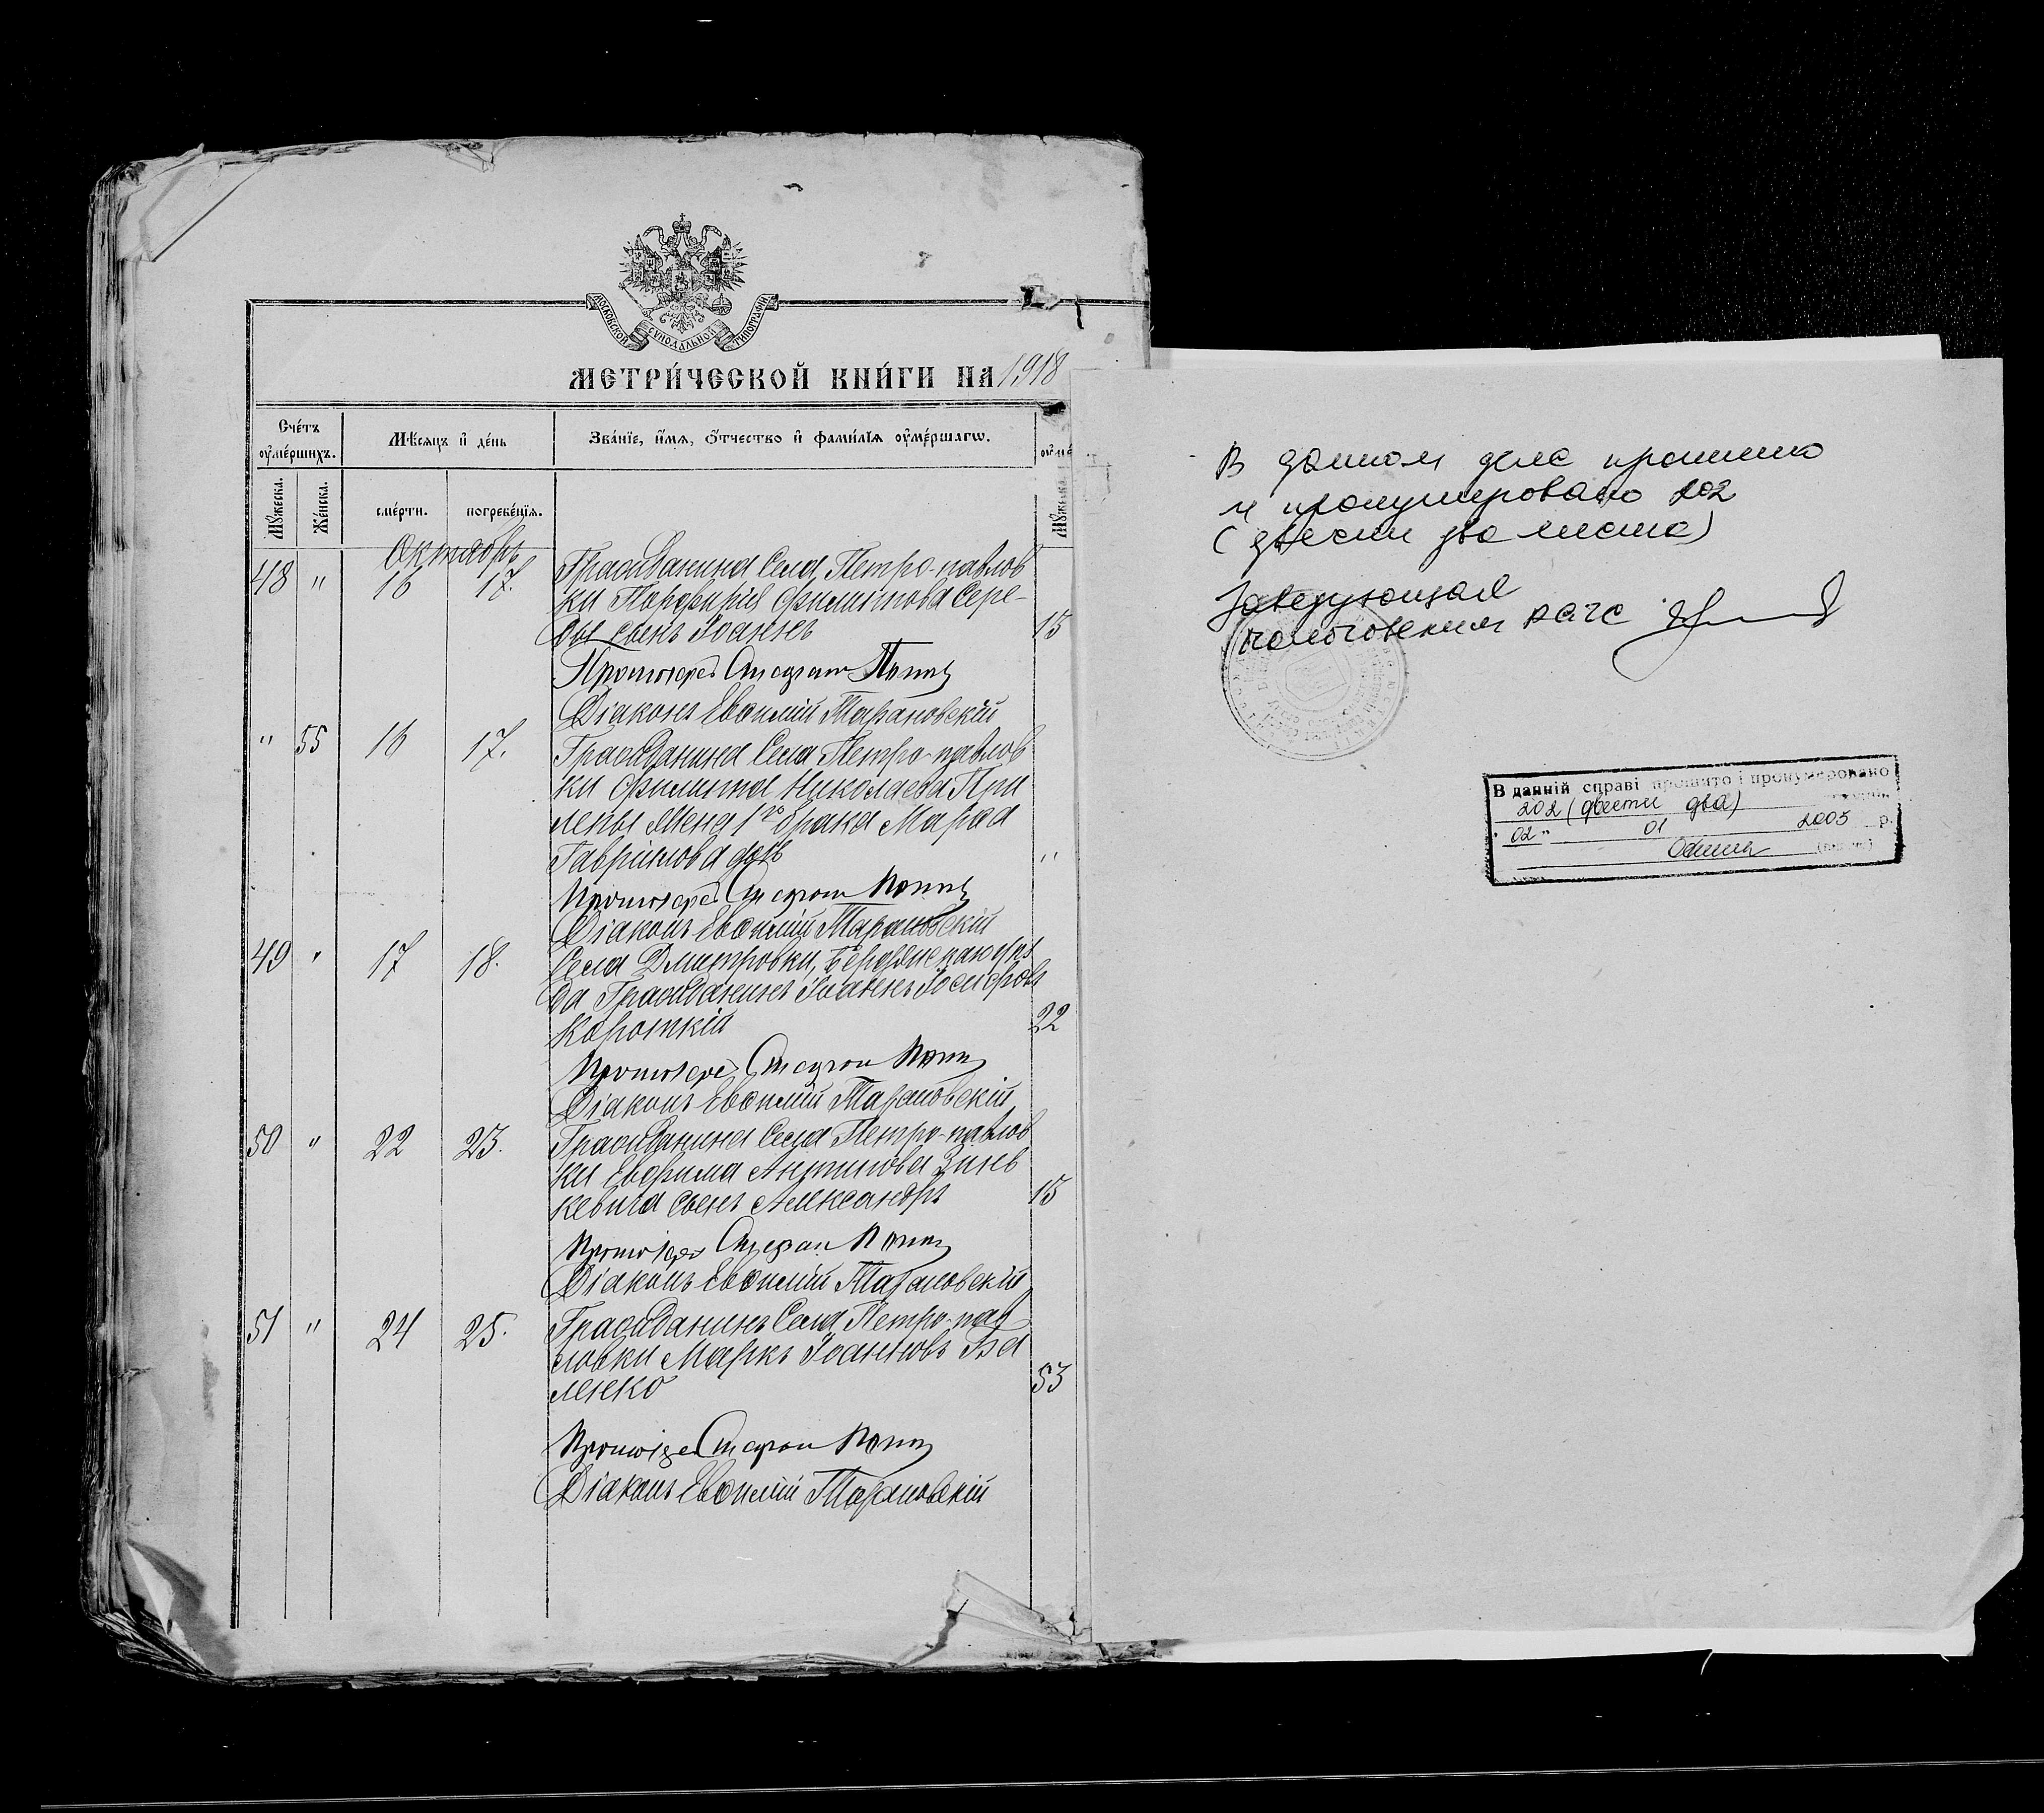 МОСКОВСКОЙ СѴНОДАЛЬНОЙ ТИПОГРАФІИ
МЕТРИ́ЧЕСКОЙ КНИ́ГИ НА 1918
Сче́тъ оу҆ме́ршихъ.
Мѣ́сяцъ и҆ де́нь
Зва́нїе, и҆́мя, ѻ҆́тчество и҆ фами́лїя оу҆ме́ршагѡ.
Мꙋ́жеска.
Же́нска.
сме́рти.
погребе́нїя.
Октябрь
48 " 16 17. Гражданина Села Петро-павлов
ки Порфирія Филиппова Сере-
ды сынъ Іоаннъ 15
Протоіерей Стефан Попов
Діаконъ Евѳимій Тарановскій
" 55 16 17. Гражданина Села Петро-павлов
ки Филиппа Николаева При
лепы жена 1го брака Марѳа
Гавріилова "
Протоіерей Стефан Попов
Діаконъ Евѳимій Тарановскій
49 " 17 18. Села Дмитровки, Бердянскаго уѣз
да Гражданинъ Іоаннъ Іосифовъ
Короткій 22
Протоіерей Стефан Попов
Діаконъ Евѳимій Тарановскій
50 " 22 23. Гражданина Села Петро-павлов
ки Евфима Антипова Зинь
кевича сынъ Александръ 15
Протоіерей Стефан Попов
Діаконъ Евѳимій Тарановскій
51 " 24 25. Гражданинъ Села Петро-пав
ловки Маркъ Іоанновъ
ленко 53
Протоіерей Стефан Попов
Діаконъ Евѳимій Тарановскій
В данном деле прошито
и пронумеровано 202
(двести два листа)
Заведующая
пологовским загс
В данній справі прошито і пронумеровано
202 (двести два)
" 02 " 01 2005 р.
(підпис)